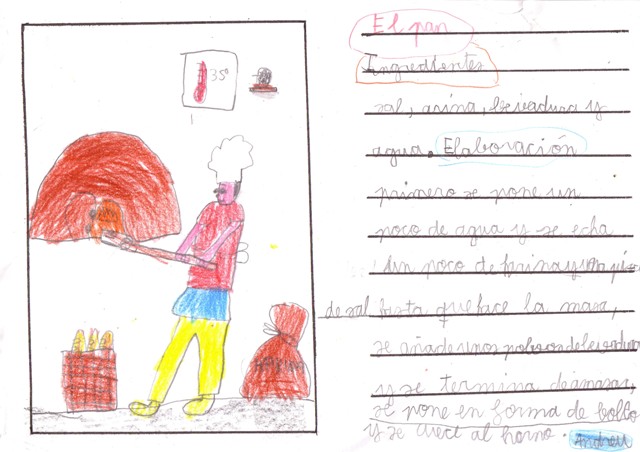 35º
El pan
Ingredientes
sal, arina, levadura y
agua. Elaboración
primero se pone un
poco de agua y se echa
un poco de farina y
de sal fasta que face la masa,
se añade unos polvos de levadura
y se termina de amasar,
se pone en forma de bollo
y se al horno.
Andreu